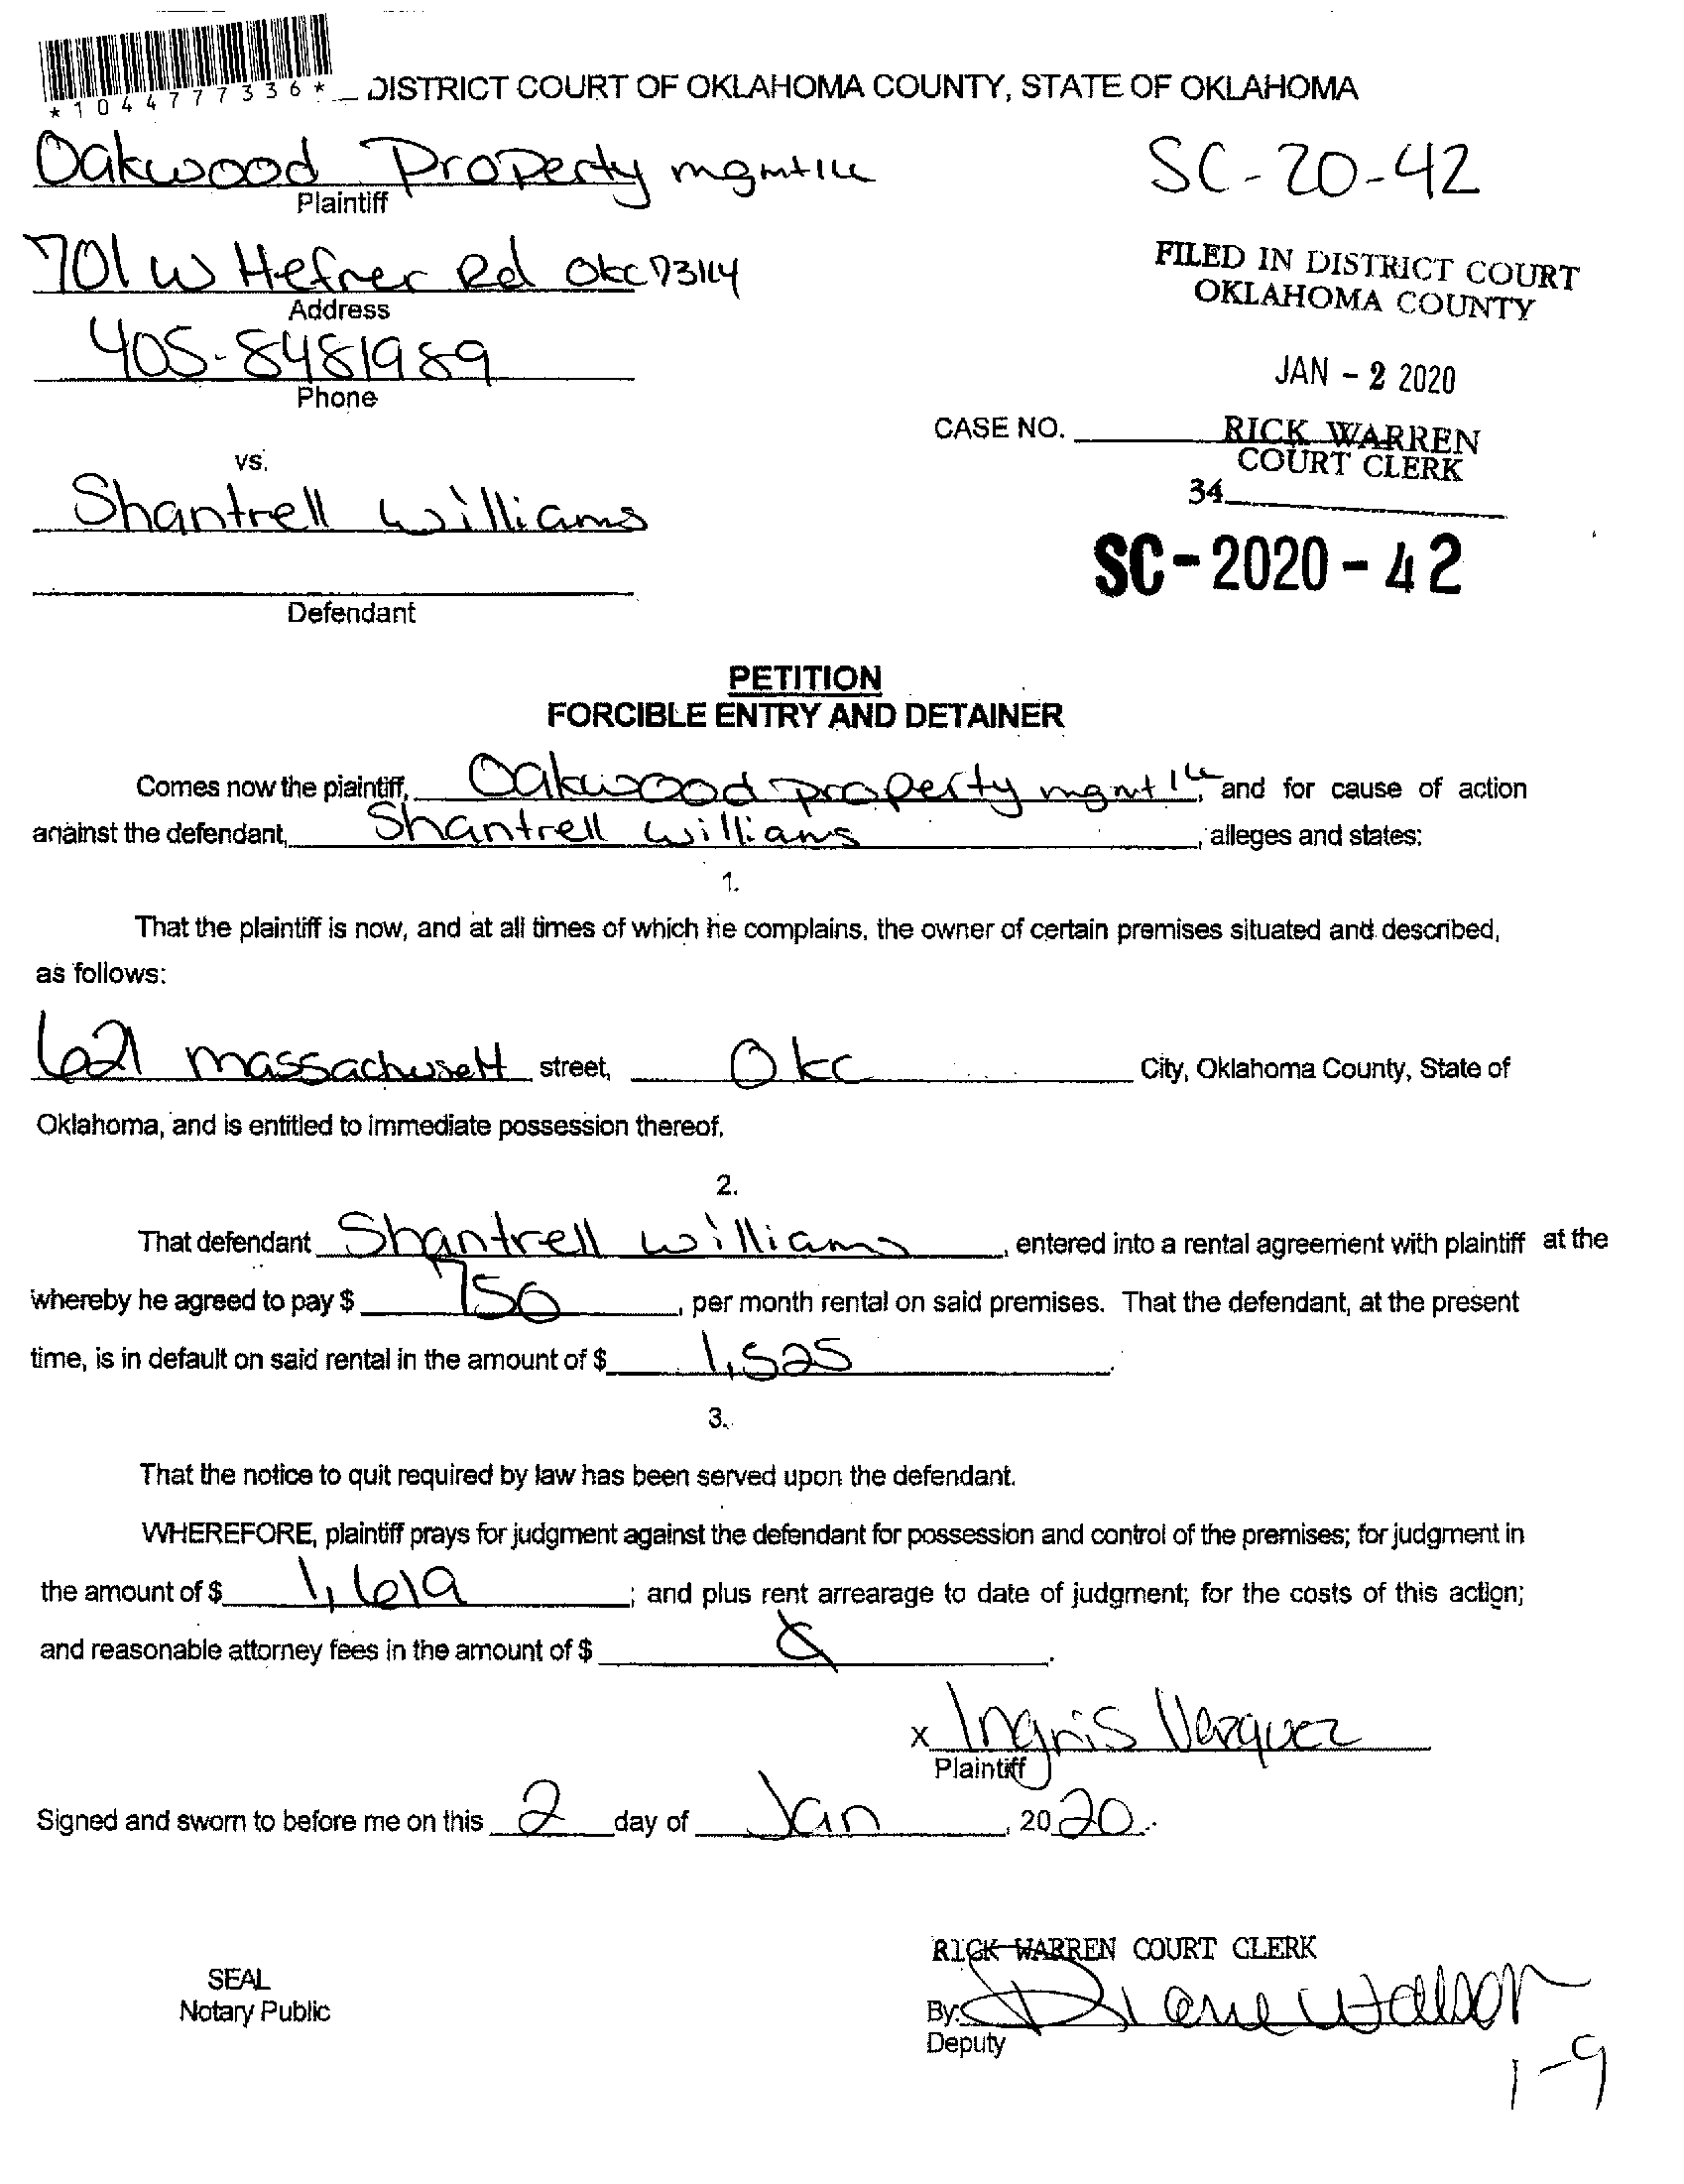 *1044777336*
DISTRICT COURT OF OKLAHOMA COUNTY, STATE OF OKLAHOMA
Oakwood Property mgmt llc
Plaintiff
SC-20-42
701 W Hefner Rd Okc 73114
Address
FILED IN DISTRICT COURT
OKLAHOMA COUNTY
405-8481989
Phone
JAN - 2 2020
CASE NO.
RICK WARREN
COURT CLERK
34
vs.
Shantrell Williams
SC-2020-42
Defendant
PETITION
FORCIBLE ENTRY AND DETAINER
Comes now the plaintiff, Oakwood property mgmt llc, and for cause of action
against the defendant, Shantrell Williams, alleges and states:
1.
That the plaintiff is now, and at all times of which he complains, the owner of certain premises situated and described,
as follows:
621 Massachusett street, Okc City, Oklahoma County, State of
Oklahoma, and is entitled to immediate possession thereof.
2.
That defendant Shantrell Williams, entered into a rental agreement with plaintiff at the
whereby he agreed to pay $ 750, per month rental on said premises. That the defendant, at the present
time, is in default on said rental in the amount of $ 1,525.
3.
That the notice to quit required by law has been served upon the defendant.
WHEREFORE, plaintiff prays for judgment against the defendant for possession and control of the premises; for judgment in
the amount of $ 1,619; and plus rent arrearage to date of judgment; for the costs of this action;
and reasonable attorney fees in the amount of $
x Ingris Vazquez
Plaintiff
Signed and sworn to before me on this 2 day of Jan, 2020.
RICK WARREN COURT CLERK
SEAL
Notary Public
By: Diane Watson
Deputy
1-9